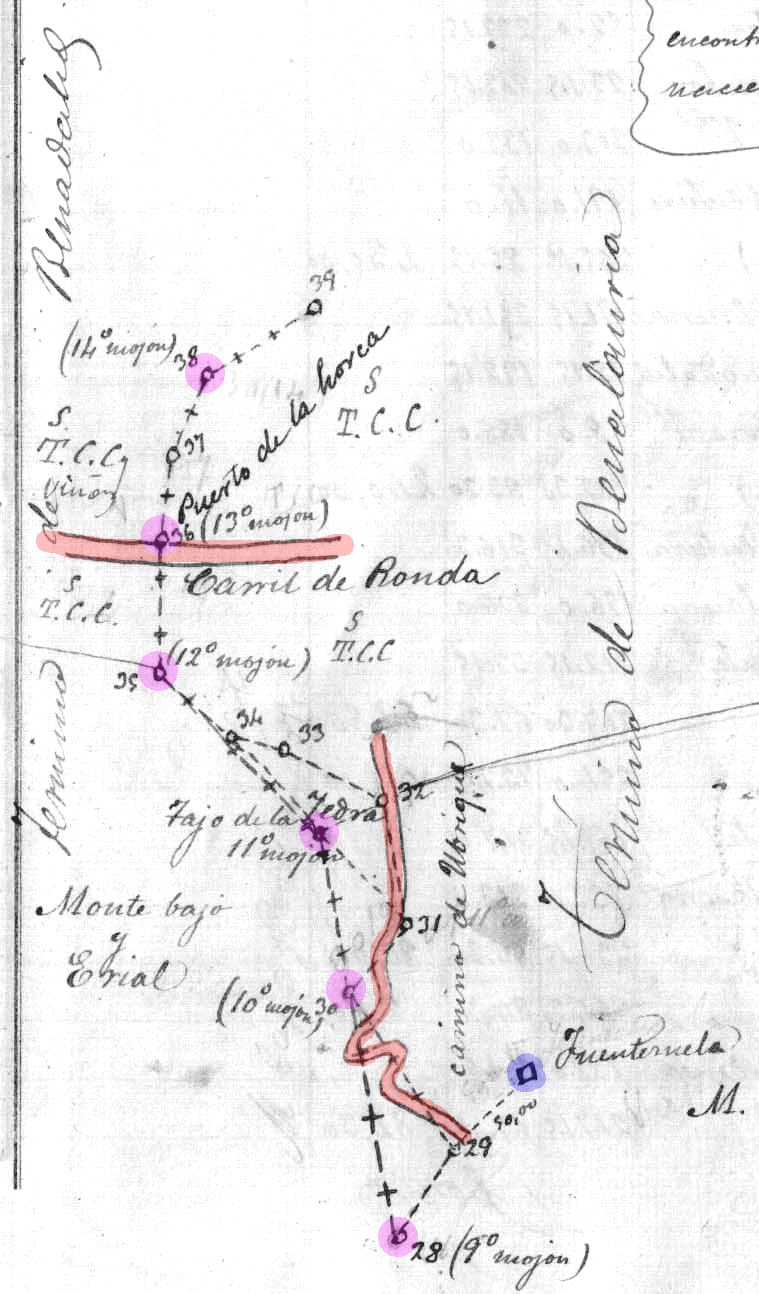 encont
nace
Benadalid
39
(14º mojon)
38
S
T.C.C.
Puerto de la horca
S
T.C.C. y
de viñas
37
36 (13º mojon)
Carril de Ronda
S
T.C.C.
S
T.C.C
(12º mojon)
35
34
33
32
Termino
Termino de Benalauria
camino de Ubrique
Tajo de la Yedra
11º mojon
31
Monte bajo
y
Erial
(10º mojon)
30
Fuentezuela
M.
50,00
29
28 (9º mojon)